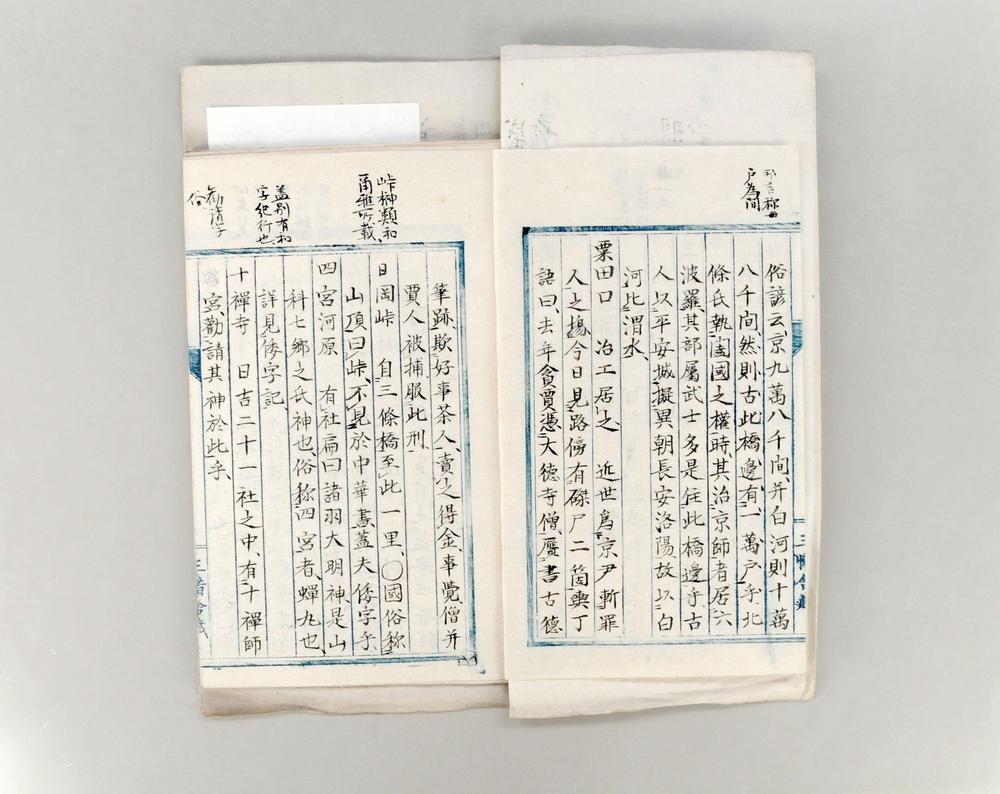 邦言称毎
戸為間
俗諺云、京九萬八千間、并白河則十萬
八千間、然則古此橋邊有一萬戸乎、北
條氏執國之權時、其治京師者居六
波羅、其部屬武士多是住此橋邊乎、古
人以平安城擬異朝長安洛陽、故以白
河比渭水、
粟田口 冶工居之 近世爲京尹斬罪
人之場、今日見路傍有磔尸二箇輿丁
語曰、去年貪賈憑大徳寺僧、贋書古徳
峠榊類和
爾雅所載、
蓋別有和
字紀行也、
勧請字
俗
筆跡、欺好事茶人、賣之得金、事覺僧并
賈人被捕服此刑、
日岡峠 自三條橋至此一里、〇國俗称
山頂曰峠、不見於中華書、蓋夫倭字乎
四宮河原 有社扁曰諸羽大明神是山
科七郷之氏神也、俗称四宮者、蟬丸也
詳見倭字記、
十禪寺 日吉二十一社之中、有十禪師
宮、勸請其神於此乎、